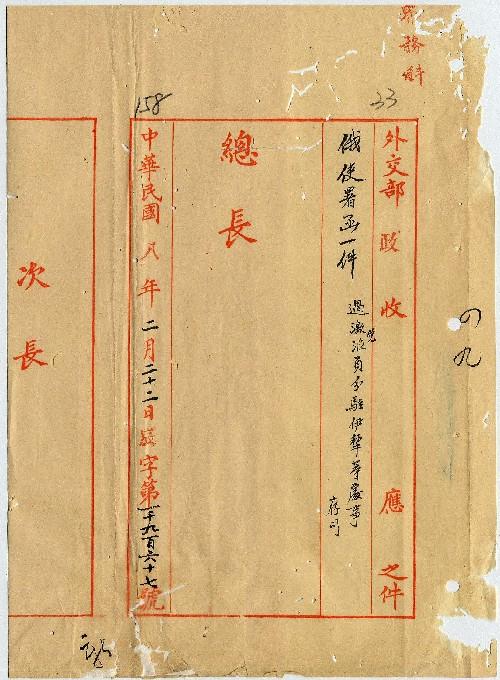 33
外交部 政 收 應 之件
俄使署函一件
過激派員分駐伊犂等處事
存司
總長
158
中華民國八年二月二十二日發字第一千九百六十七號
次長